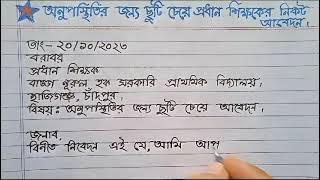 অনুপস্থিতির জন্য ছুটি চেয়ে প্রধান শিক্ষকের নিকট
আবেদন।
তাং- ২০/১০/২০২৩
বরাবর
প্রধান শিক্ষক
নুরুল হক সরকারি প্রাথমিক বিদ্যালয়,
হাজিগঞ্জ, চাঁদপুর।
বিষয়: অনুপস্থিতির জন্য ছুটি চেয়ে আবেদন।
জনাব,
বিনীত নিবেদন এই যে, আমি আপ